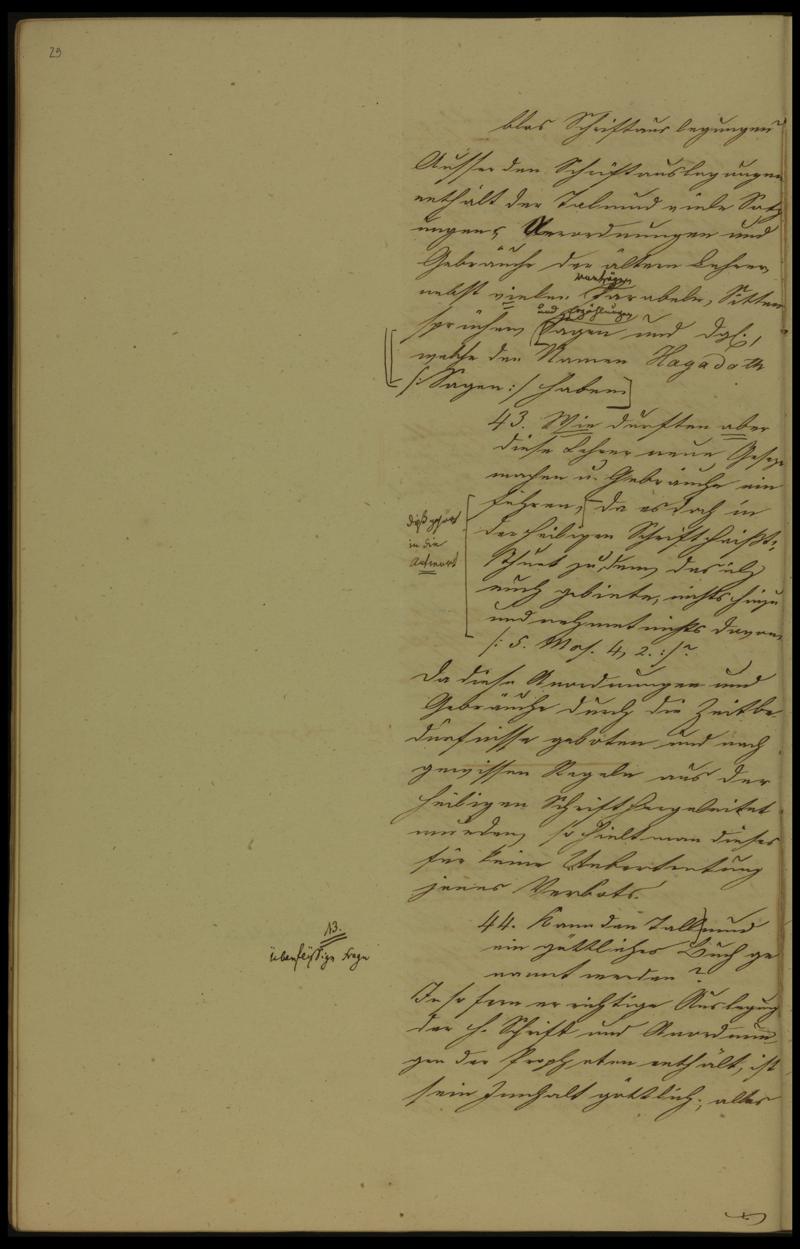 29
blos Schriftauslegungen
Ausser den Schriftauslegungen
enthält der Talmud viele Satz
ungen, Verordnungen und
Gebräuche der ältern Lehrer
nebst vielen Parabeln, Sitten
und Erzählungen
sprüchen Sagen und dgl.,
welche den Namen Hagadoth
/: Sagen :/ haben
43. Wie durften aber
diese Lehrer neue Geseze
machen u. Gebräuche ein
führen, da es doch in
der heiligen Schrift heißt:
dieß gehört
in die
Antwort
Thuet zu dem, das ich
euch gebiete, nichts hinzu
und nehmet nichts davon
/: 5. Mos. 4, 2. :/?
Da diese Anordnungen und
Gebräuche durch die Zeitbe
dürfnisse geboten und nach
gewissen Regeln aus der
heiligen Schrift hergeleitet
wurden, so hielt man dieses
für keine Uebertretung
jenes Verbots.
44. Kann der Talmud
ein göttliches Buch ge
nannt werden?
13.
überflüssige Frage
In so fern er richtige Auslegung
der h. Schrift und Anordnun
gen der Propheten enthält, ist
sein Innhalt göttlich; alles